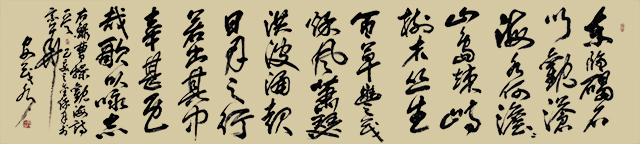 東臨碣石
以觀滄
海水何澹々
山島竦峙
樹木丛生
百草豐茂
秋風蕭瑟
洪波涌起
日月之行
若出其中
幸甚至
哉歌以咏志
右錄曹操觀滄海詩